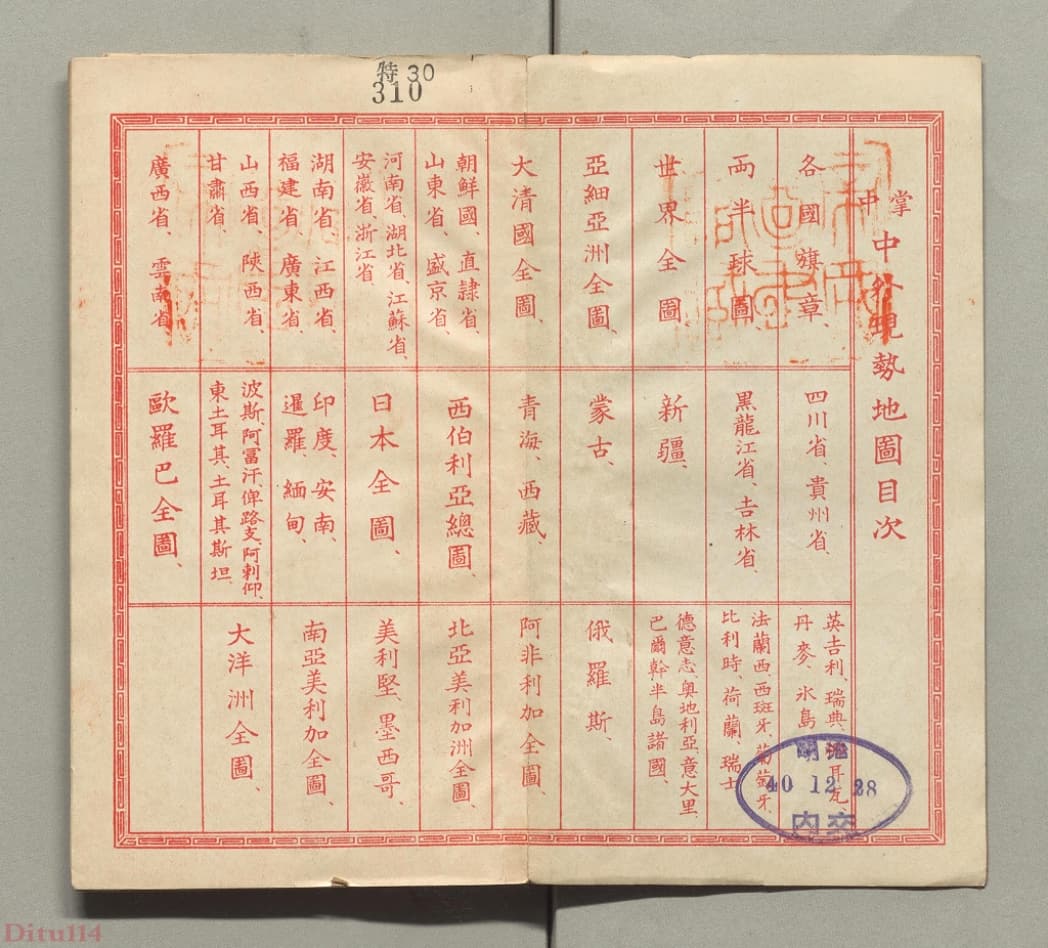 特30
310
掌中
中外現勢地圖目次
各國旗章、
兩半球圖、
世界全圖、
亞細亞洲全圖、
大清國全圖、
朝鮮國、直隸省、
山東省、盛京省、
河南省、湖北省、江蘇省、
安徽省、浙江省
湖南省、江西省、
福建省、廣東省、
山西省、陝西省、
甘肅省、
廣西省、雲南省、
四川省、貴州省、
黑龍江省、吉林省、
新疆、
蒙古、
青海、西藏、
西伯利亞總圖
日本全圖、
印度、安南、
暹羅、緬甸、
波斯、阿富汗、俾路支、阿剌伯、
東土耳其、土耳其斯坦、
歐羅巴全圖、
英吉利、瑞典、那耳瓦
丹麥、氷島
法蘭西、西班牙、葡萄牙、
比利時、荷蘭、瑞士
德意志、奧地利亞、意大里、
巴爾幹半島諸國、
俄羅斯、
阿非利加全圖、
北亞美利加洲全圖、
美利堅、墨西哥、
南亞美利加全圖、
大洋洲全圖、
40 12 28
內交
Ditu114